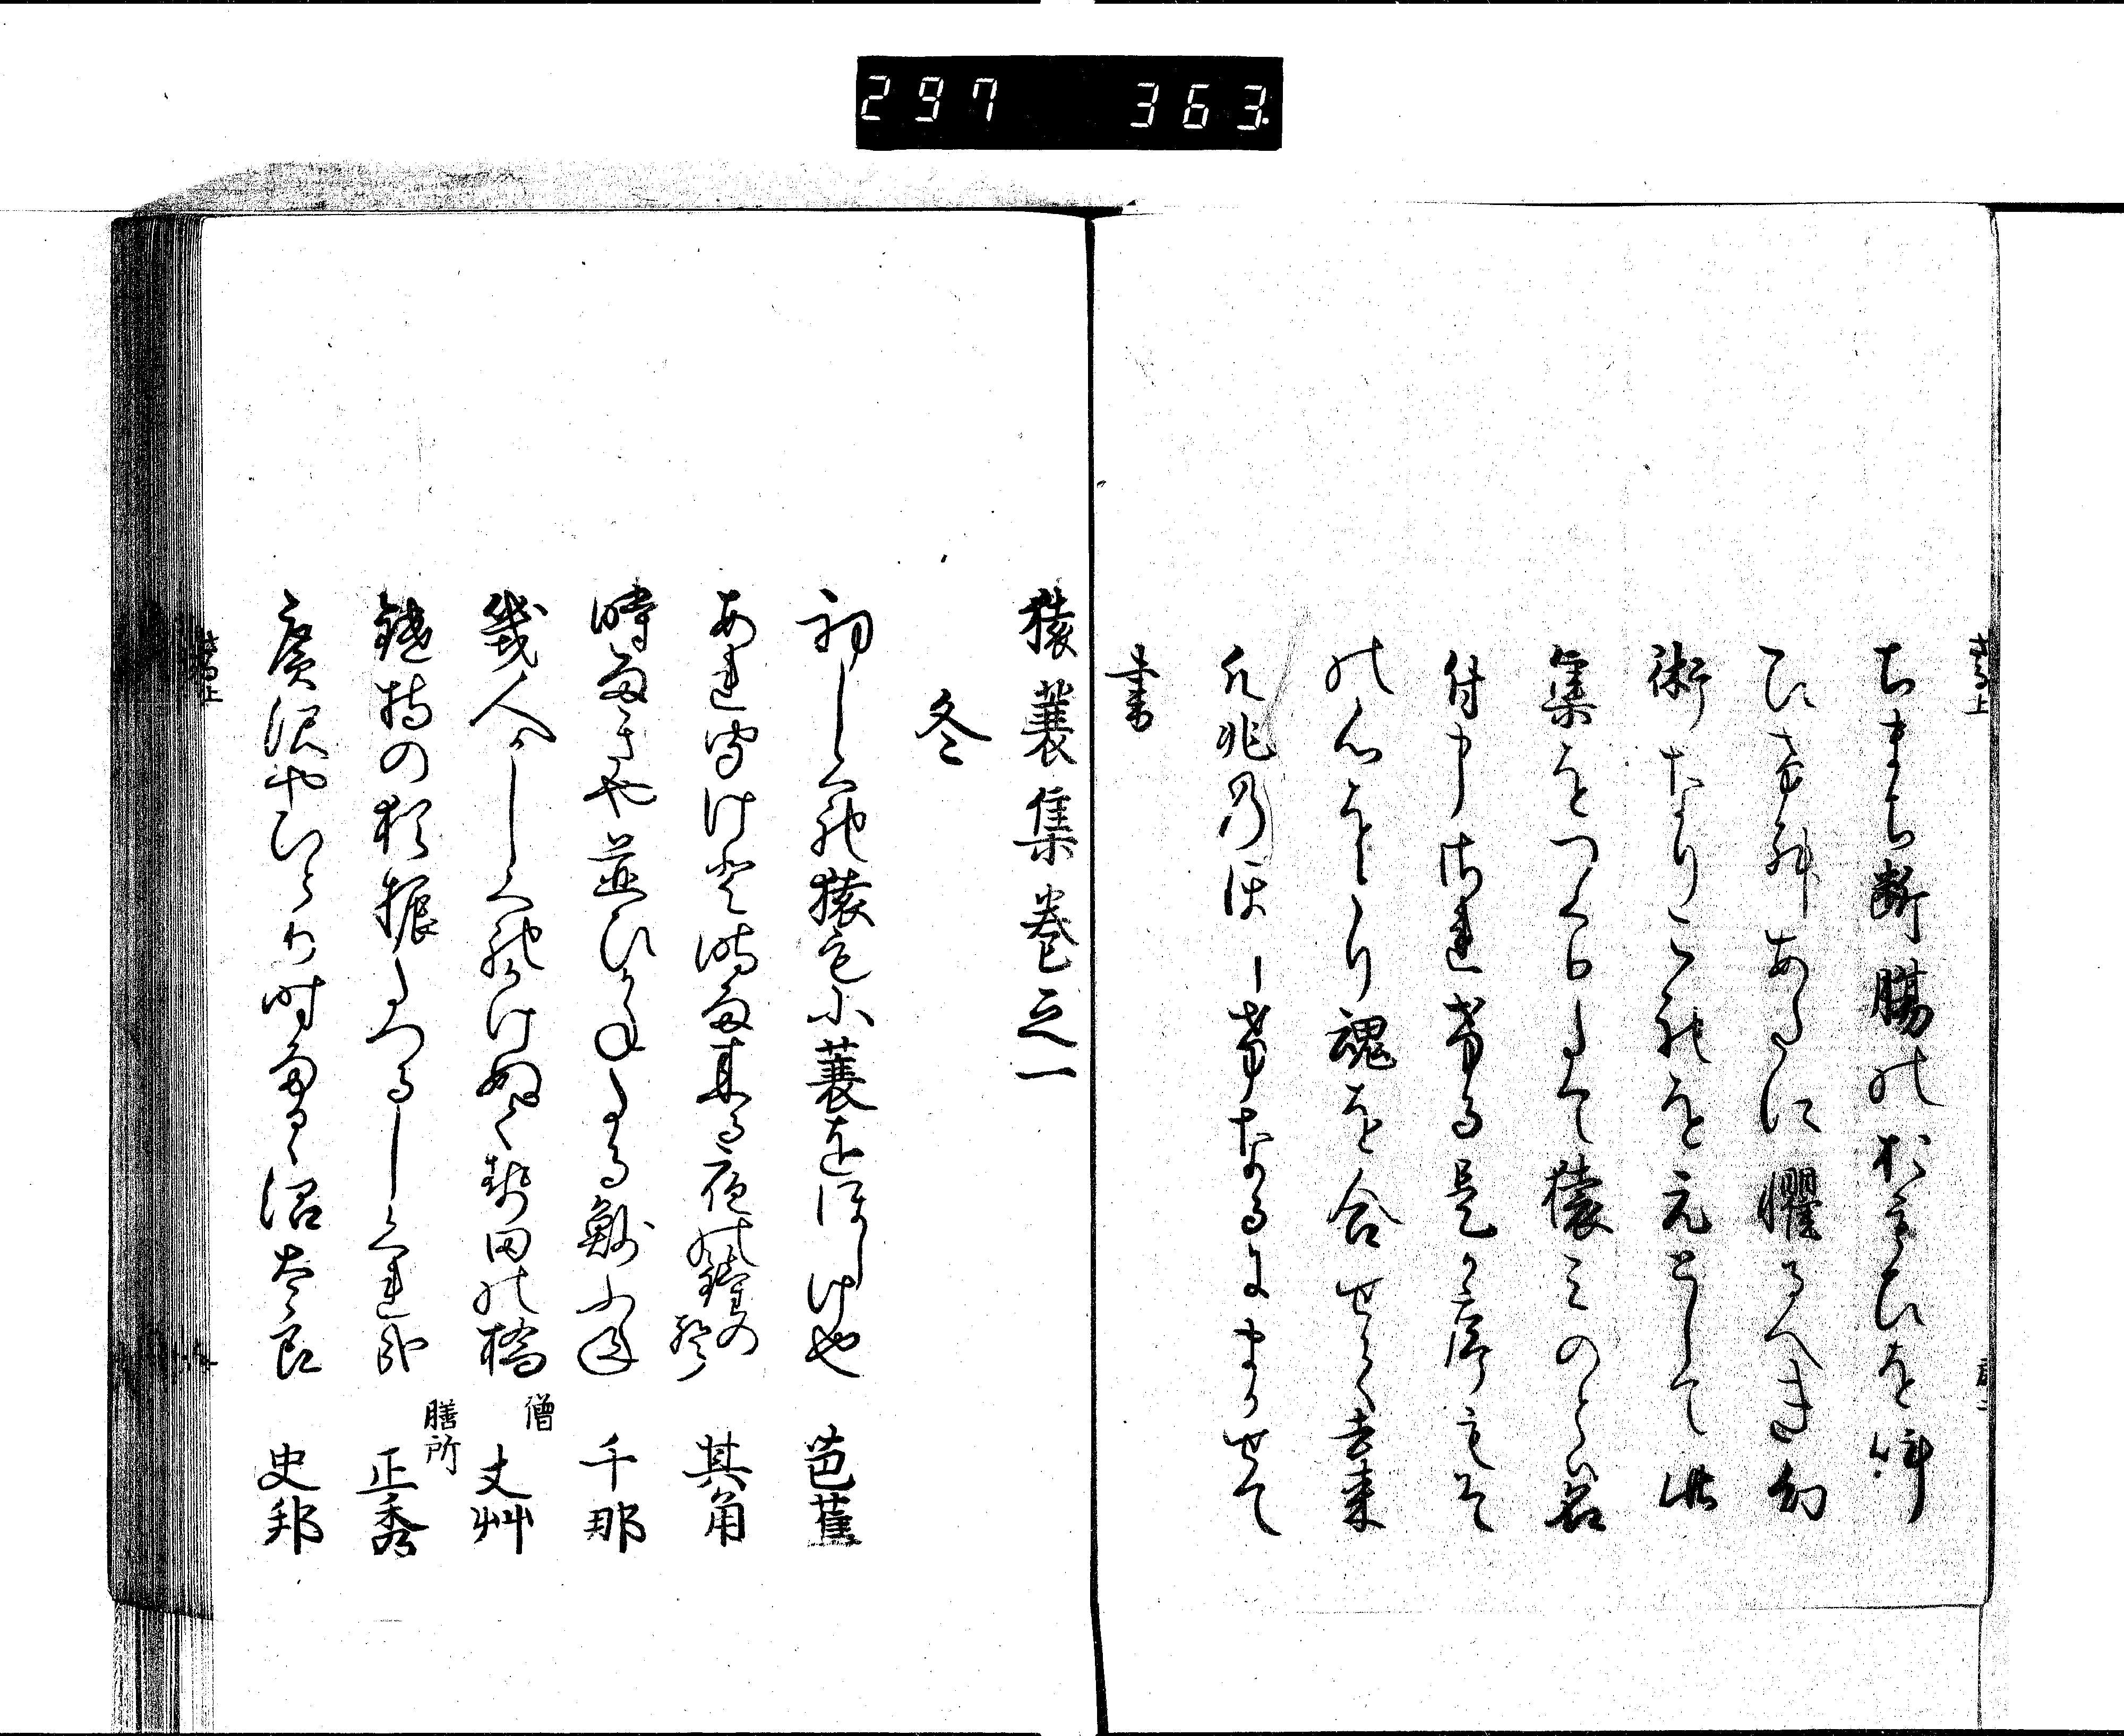 297 363
ちまち断膓のおもひを叫
ひけむあたに懼るへき幻
術なりこれを元として此
集をつくりたて猿みのとは名
付申されける是か序もそ
の心をとり魂を合せて去来
凡兆のほしけなるにまかせて
書
猿蓑集巻之一
冬
初しくれ猿も小蓑をほしけ也 芭蕉
あれ聞けと時雨来る夜の鐘の声 其角
時雨きや並ひかねたる魦ふね 千那
幾人かしくれかけぬく勢田の橋 僧 丈艸
鑓持の猶振たつるしくれ哉 膳所 正秀
広沢やひとり時雨るゝ沼太良 史邦